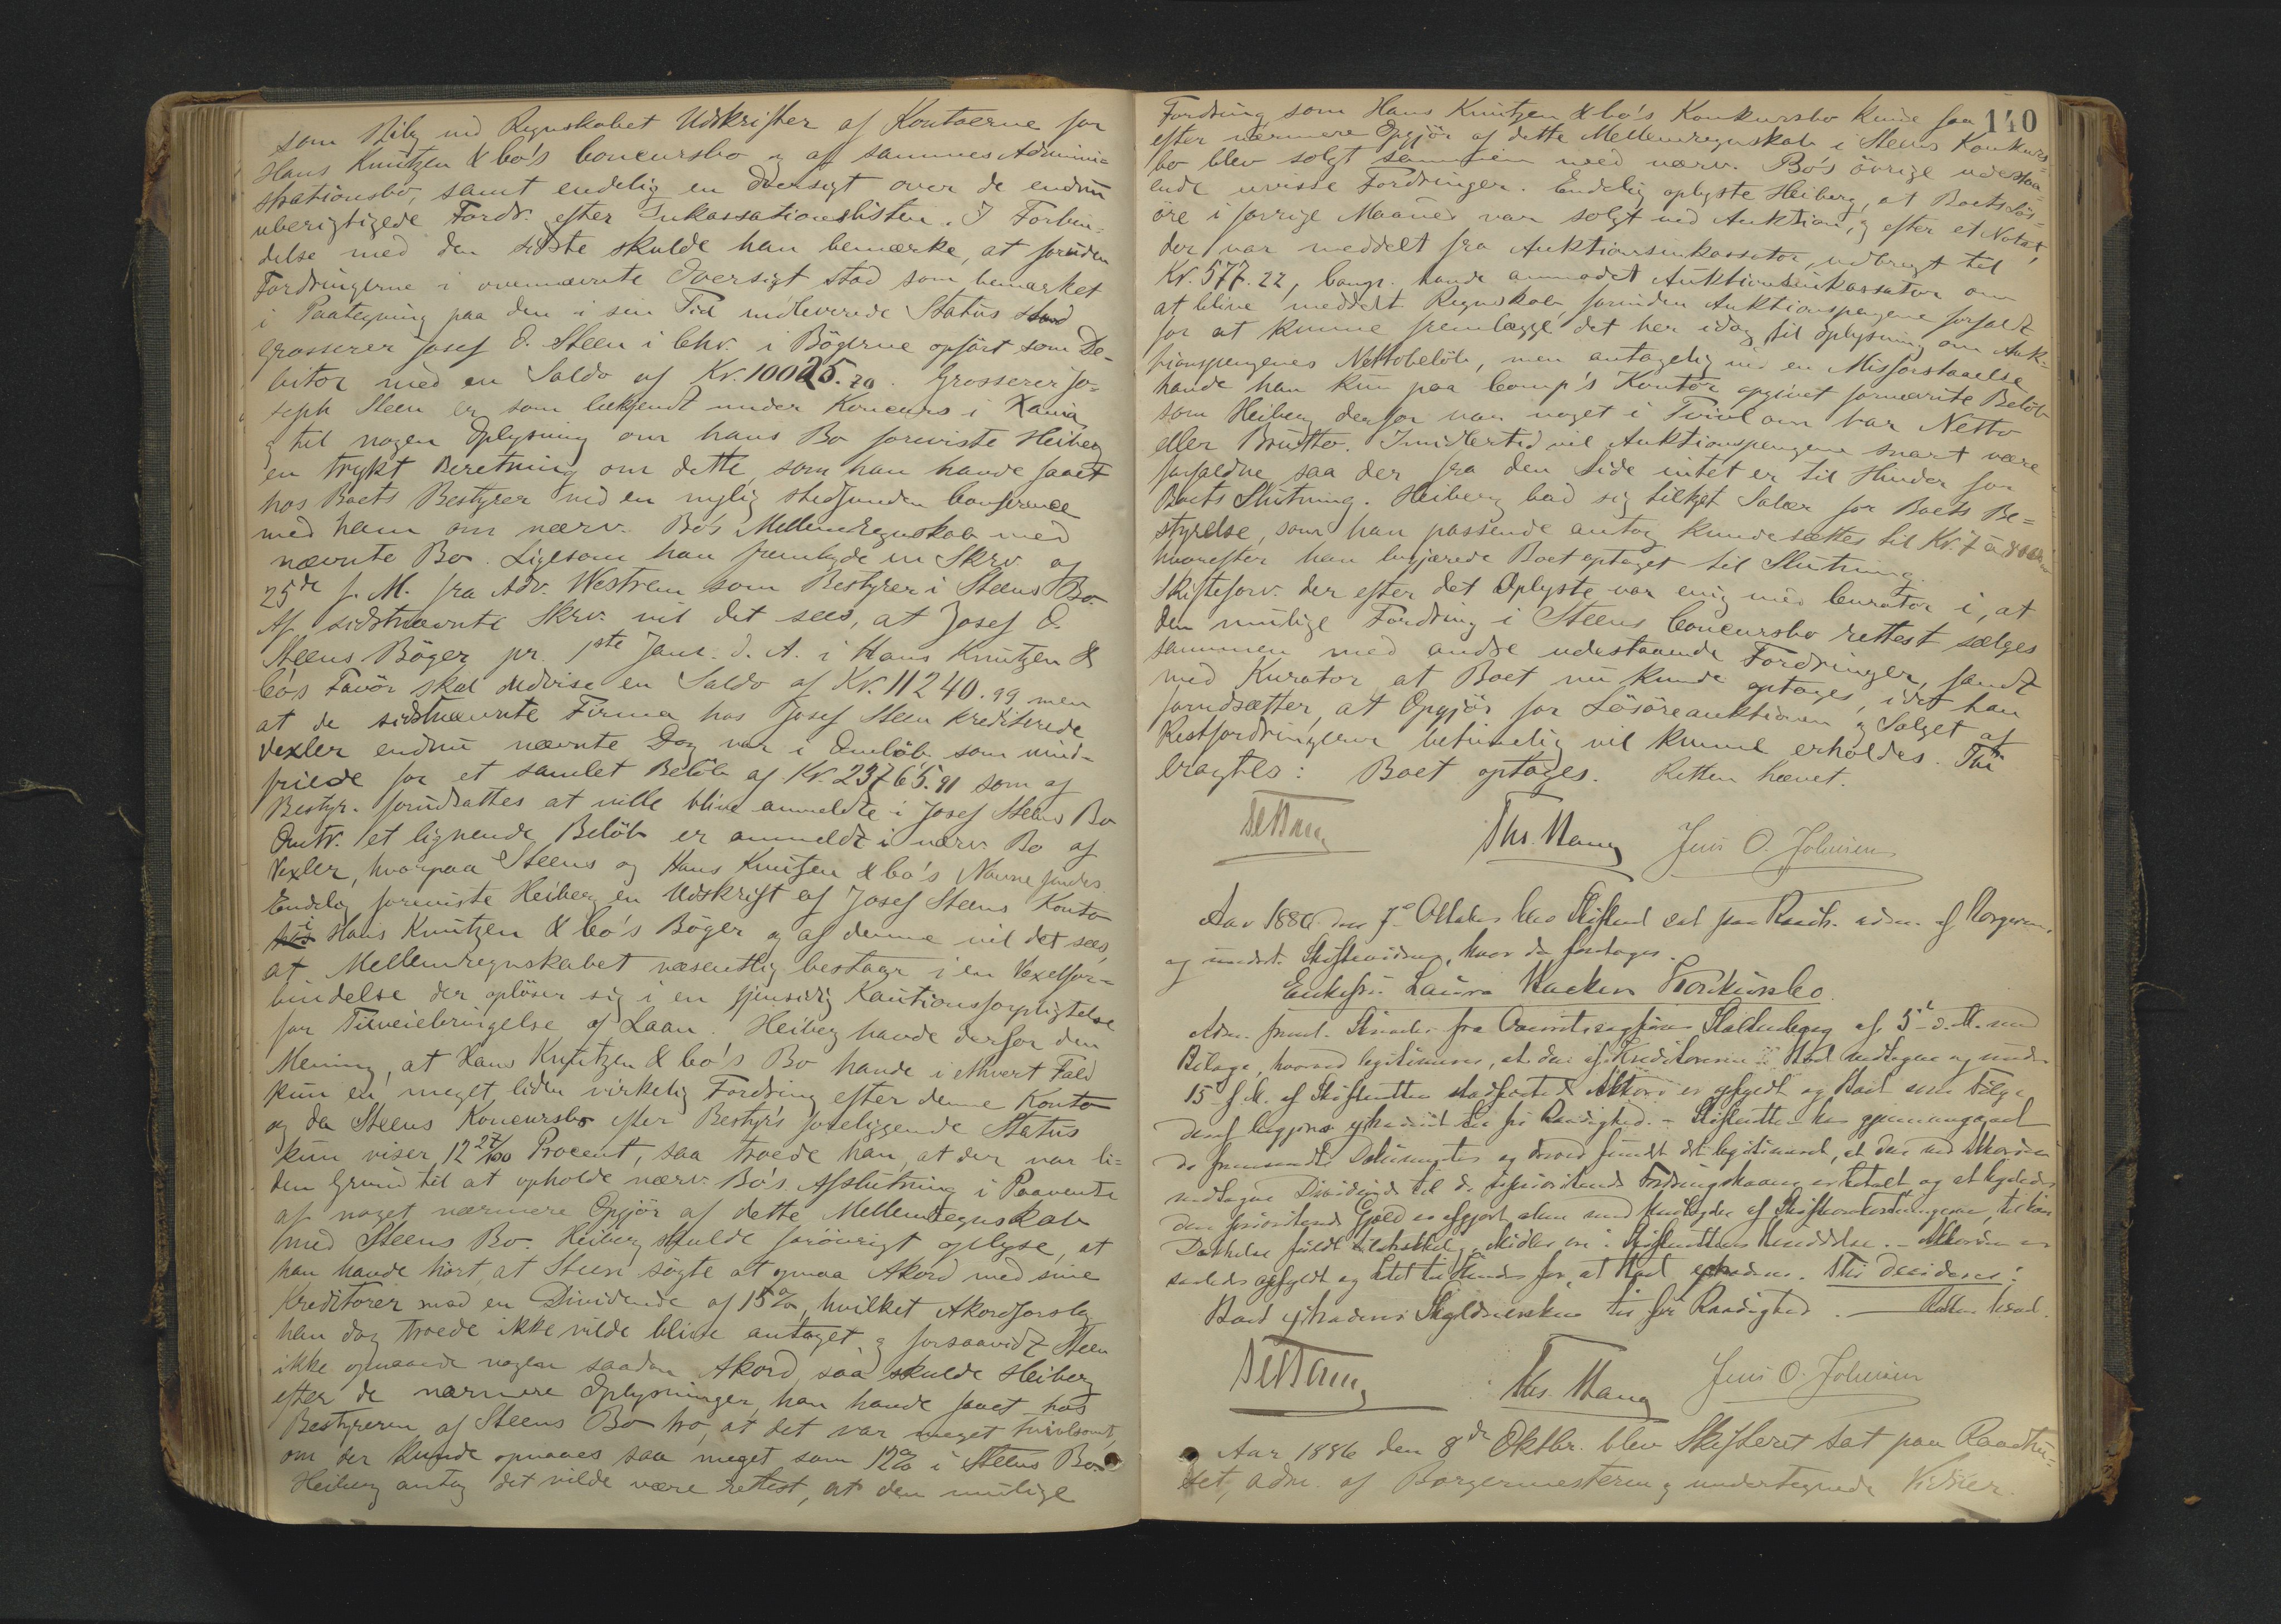 som Bilg ved Regnskabet Udskrifter af Kontoerne for
Hans Knutzen & Co's Concursbo og af sammes Admini-
strationsbo, samt endelig en Oversigt over de endnu
uberigtigede Fordr. efter Inkassationslisten. I Forbin-
delse med den sidste skulde han bemærke, at foruden
Fordringerne i ovennævnte Oversigt stod som bemærket
i Paategning paa den i sin Tid indleverede Status
Grosserer Josef O. Steen i Chr. i Bögerne opfört som De-
bitor med en Saldo af Kr. 10025.20. Grosserer Jo-
seph Steen er som bekjendt under Koncurs i Xania
og til nogen Oplysning om hans Bo foreviste Heiberg
en trykt Beretning om dette, som han havde faaet
hos Boets Bestyrer ved en nylig stedfunden Conference
med ham om nærv. Bo's Mellemregnskab med
nævnte Bo. Ligesom han fremlagde en Skrv. af
25de f. M. fra Adv. Westrem som Bestyrer i Steens Bo.
Af sidstnævnte Skrv. vil det sees, at Josef O.
Steens Böger pr. 1ste Janr. d. A. i Hans Knutzen &
Co's Favör skal udvise en Saldo af Kr. 11240.99 men
at de sidstnævnte Firma hos Josef Steen krediterede
Vexler endnu nævnte Dag var i Omlöb som uind-
friede for et samlet Belöb af Kr. 23765.91 som af
Bestyr. forudsattes at ville blive anmeldte i Josef Steens Bo
Omtr. et lignende Belöb er anmeldt i nærv. Bo af
Vexler, hvorpaa Steens og Hans Knutzen & Co's Navne findes.
Endelig foreviste Heiberg en Udskrift af Josef Steens Konto
i Hans Knutzen & Co's Böger og af denne vil det sees,
at Mellemregnskabet væsentlig bestaar i en Vexelfor-
bindelse der oplöser sig i en gjensidig Kautionsforpligtelse
for Tilveiebringelse af Laan. Heiberg havde derfor den
Mening, at Hans Knutzen & Co's Bo havde i ethvert Fald
kun en meget liden virkelig Fordring efter denne Konto
og da Steens Koncursbo efter Bestyr's foreliggende Status
kun viser 12 27/100 Procent, saa troede han, at der var li-
den Grund til at opholde nærv. Bo's Afslutning i Paavente
af noget nærmere Opgjör af dette Mellemregnskab
med Steens Bo. Heiberg skulde foröivrigt oplyse, at
han havde hört, at Steen sögte at opnaa Akord med sine
Kreditorer mod en Dividende af 15%, hvilket Akordforslag
han dog troede ikke vilde blive antaget og forsaavidt Steen
ikke opnaaede nogen saadan Akord, saa skulde Heiberg
efter de nærmere Oplysninger, han havde faaet hos
Bestyreren af Steens Bo tro, at det var meget tvivlsomt,
om der kunde opnaaes saa meget som 12% i Steens Bo.
Heiberg antog det vilde være rettest, at den mulige
140
Fordring som Hans Knutzen & Co's Konkursbo kunde faa
efter nærmere Opgjör af dette Mellemregnskab i Steens Konkurs-
bo blev solgt sammen med nærv. Bo's övrige udestaa-
ende uvisse Fordringer. Endelig oplyste Heiberg, at Boets Lös-
öre i forrige Maaned var solgt ved Auktion, og efter et Notat,
der var meddelt fra Auktionsinkassator, udbragt til
Kr. 577.22, Comp. havde anmodet Auktionsinkassator om
at blive meddelt Regnskab, forinden Auktionspengene forfaldt
for at kunne fremlægge det her idag til Oplysning om Auk-
tionspengenes Nettobelöb, men antagelig ved en Misforstaaelse
havde han kun paa Comp's Kontor opgivet fornævnte Belöb
som Heiberg derfor var noget i Tvivl om var Netto
eller Brutto. Imidlertid vil Auktionspengene snart være
forfaldne, saa der fra den Side intet er til Hinder for
Boets Slutning. Heiberg bad sig tillagt Salær for Boets Be-
styrelse, som han passende antog kunde sættes til Kr. 7 à 800
hvorefter han begjærede Boet optaget til Slutning.
Skifteforv. der efter det Oplyste var enig med Curator i, at
den mulige Fordring i Steens Concursbo rettest sælges
sammen med andre udestaaende Fordringer, fandt
med Kurator at Boet nu kunde optages, idet han
forudsætter, at Opgjör for Lösöreauktionen og Salget af
Restfordringerne betimelig vil kunne erholdes. Thi
eragtes: Boet optages. Retten hævet.
Ths. Mang Jens O. Johnsen
Aar 1886 den 7de Oktober blev Skifteret sat paa Raadh. adm. af Borgerm.
og undert. Skiftevidner, hvor da foretoges.
Enkefru Laura Konkursbo.
Adm. freml. Skrivelse fra Overretssagförer af 5te d. M. med
Bilage, hvorved legitimeres, at den af Kreditorerne i Boet vedtagne og under
15 f. M. af Skifteretten stadfæstede Akkord er opfyldt og Boet som Fölge
deraf begjæres extraderet til fri Raadighed. - Skifteretten har gjennemgaaet
de fremsendte Dokumenter og derved fundet det legitimeret, at den ved Akkorden
vedtagne Dividende til de uprioriterede Fordringshavere er betalt og at ligeledes
den prioriterede Gjæld er afgjort, alene med Undtagelse af Skifteomkostningerne, til hvis
Dækkelse fuldt tilstrækkelig Midler ere i Skifterettens Værge. - Akkorden er
saaledes opfyldt og Intet til Hinder for, at Boet extraderes. Thi decideres:
Boet extraderes Skyldnersken til fri Raadighed. — Retten hævet.
Ths. Mang Jens O. Johnsen
Aar 1886 den 8de Oktbr. blev Skifteret sat paa Raadhu-
set, adm. af Borgermesteren og undertegnede Vidner.